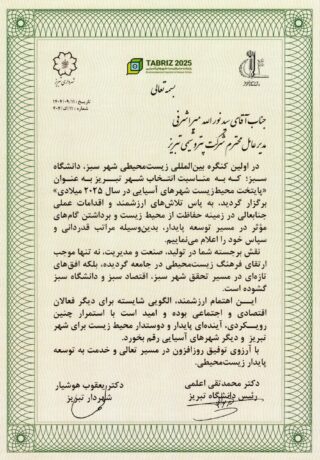 TABRIZ 2025
شهرداری تبریز
بسمه تعالی
جناب آقای سید نورالله میراشرفی
مدیرعامل محترم شرکت پتروشیمی تبریز
در اولین کنگره بین‌المللی زیست‌محیطی شهر سبز، دانشگاه
سبز؛ که به مناسبت انتخاب شهر تبریز به عنوان
«پایتخت محیط‌زیست شهرهای آسیایی در سال ۲۰۲۵ میلادی»
برگزار گردید، به پاس تلاش‌های ارزشمند و اقدامات عملی
جنابعالی در زمینه حفاظت از محیط زیست و برداشتن گام‌های
مؤثر در مسیر توسعه پایدار، بدین‌وسیله مراتب قدردانی و
سپاس خود را اعلام می‌نماییم.
نقش برجسته شما در تولید، صنعت و مدیریت، نه تنها موجب
ارتقای فرهنگ زیست‌محیطی در جامعه گردیده، بلکه افق‌های
تازه‌ای در مسیر تحقق شهر سبز، اقتصاد سبز و دانشگاه سبز
گشوده است.
ایـن اهتمام ارزشمند، الگویی شایسته برای دیگر فعالان
اقتصادی و اجتماعی بوده و امید است با استمرار چنین
رویـکردی، آینده‌ای پایدار و دوستدار محیط زیست برای شهر
تبریز و دیگر شهرهای آسیایی رقم بخورد.
با آرزوی توفیق روزافزون در مسیر تعالی و خدمت به توسعه
پایدار زیست‌محیطی.
دکتر محمدتقی اعلمی
رئیس دانشگاه تبریز
دکتر یعقوب هوشیار
شهردار تبریز